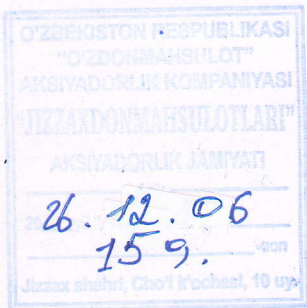 O'ZBEKISTON RESPUBLIKASI
"O'ZDONMAHSULOT"
AKSIYADORLIK KOMPANIYASI
"JIZZAXDONMAHSULOTLARI"
AKSIYADORLIK JAMIYATI
26.12.06
159.
-son
Jizzax shahri, Cho'l ko'chasi, 10 uy.